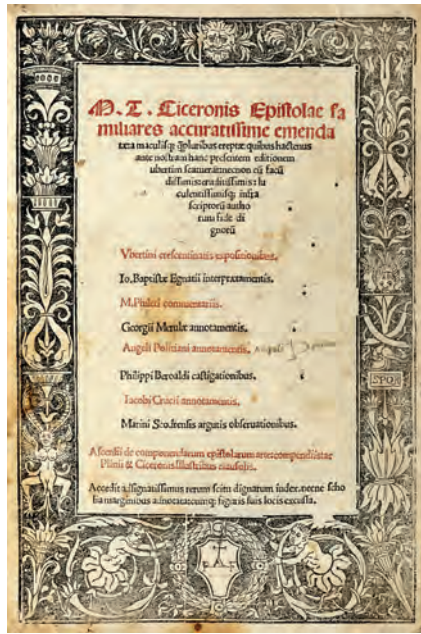 M. T. Ciceronis Epistolae fa
miliares accuratissime emenda
ante nostram hanc presentem editionem
dissimis: eruditissimis: lu
culentissimisq; infra
scriptorū autho
rum fide di
gnorū
Vbertini crescentinatis expositionibus.
Io. Baptistæ Egnatii interpretamentis.
M. Phileti commentariis.
Georgii Merulæ annotamentis.
Angeli Politiani annotamentis.
Philippi Beroaldi castigationibus.
Iacobi Crucii annotamentis.
Marini argutis obseruationibus.
Ascensii de componendarum epistolarum arte: compendii:atæ
Plinii & Ciceronis illustribus clausulis.
Accedit rerum scitu dignarum index. necne scho
lia marginibus figuris suis locis excussa.
SPQR